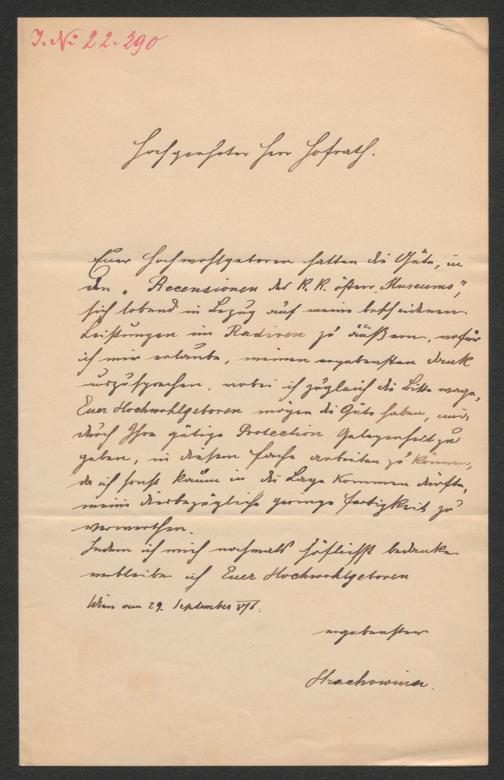 J. № 22-290
Hochgeehrter Herr Hofrath.
Euer Hochwohlgeboren hatten die Güte, in
den „Recensionen des K. K. österr. Museums",
sich lobend in Bezug auf meine bescheidenen
Leistungen im Radiren zu äußern, wofür
ich mir erlaube, meinen ergebensten Dank
auszusprechen, wobei ich zugleich die Bitte wage,
Euer Hochwohlgeboren mögen die Güte haben, mir,
durch Ihre gütige Protection Gelegenheit zu
geben, in diesem Fache arbeiten zu können,
da ich sonst kaum in die Lage kommen dürfte,
meine diesbezügliche geringe Fertigkeit zu
verwerthen.
Indem ich mich nochmals höflichst bedanke
verbleibe ich Euer Hochwohlgeboren
Wien am 29. September
ergebenster